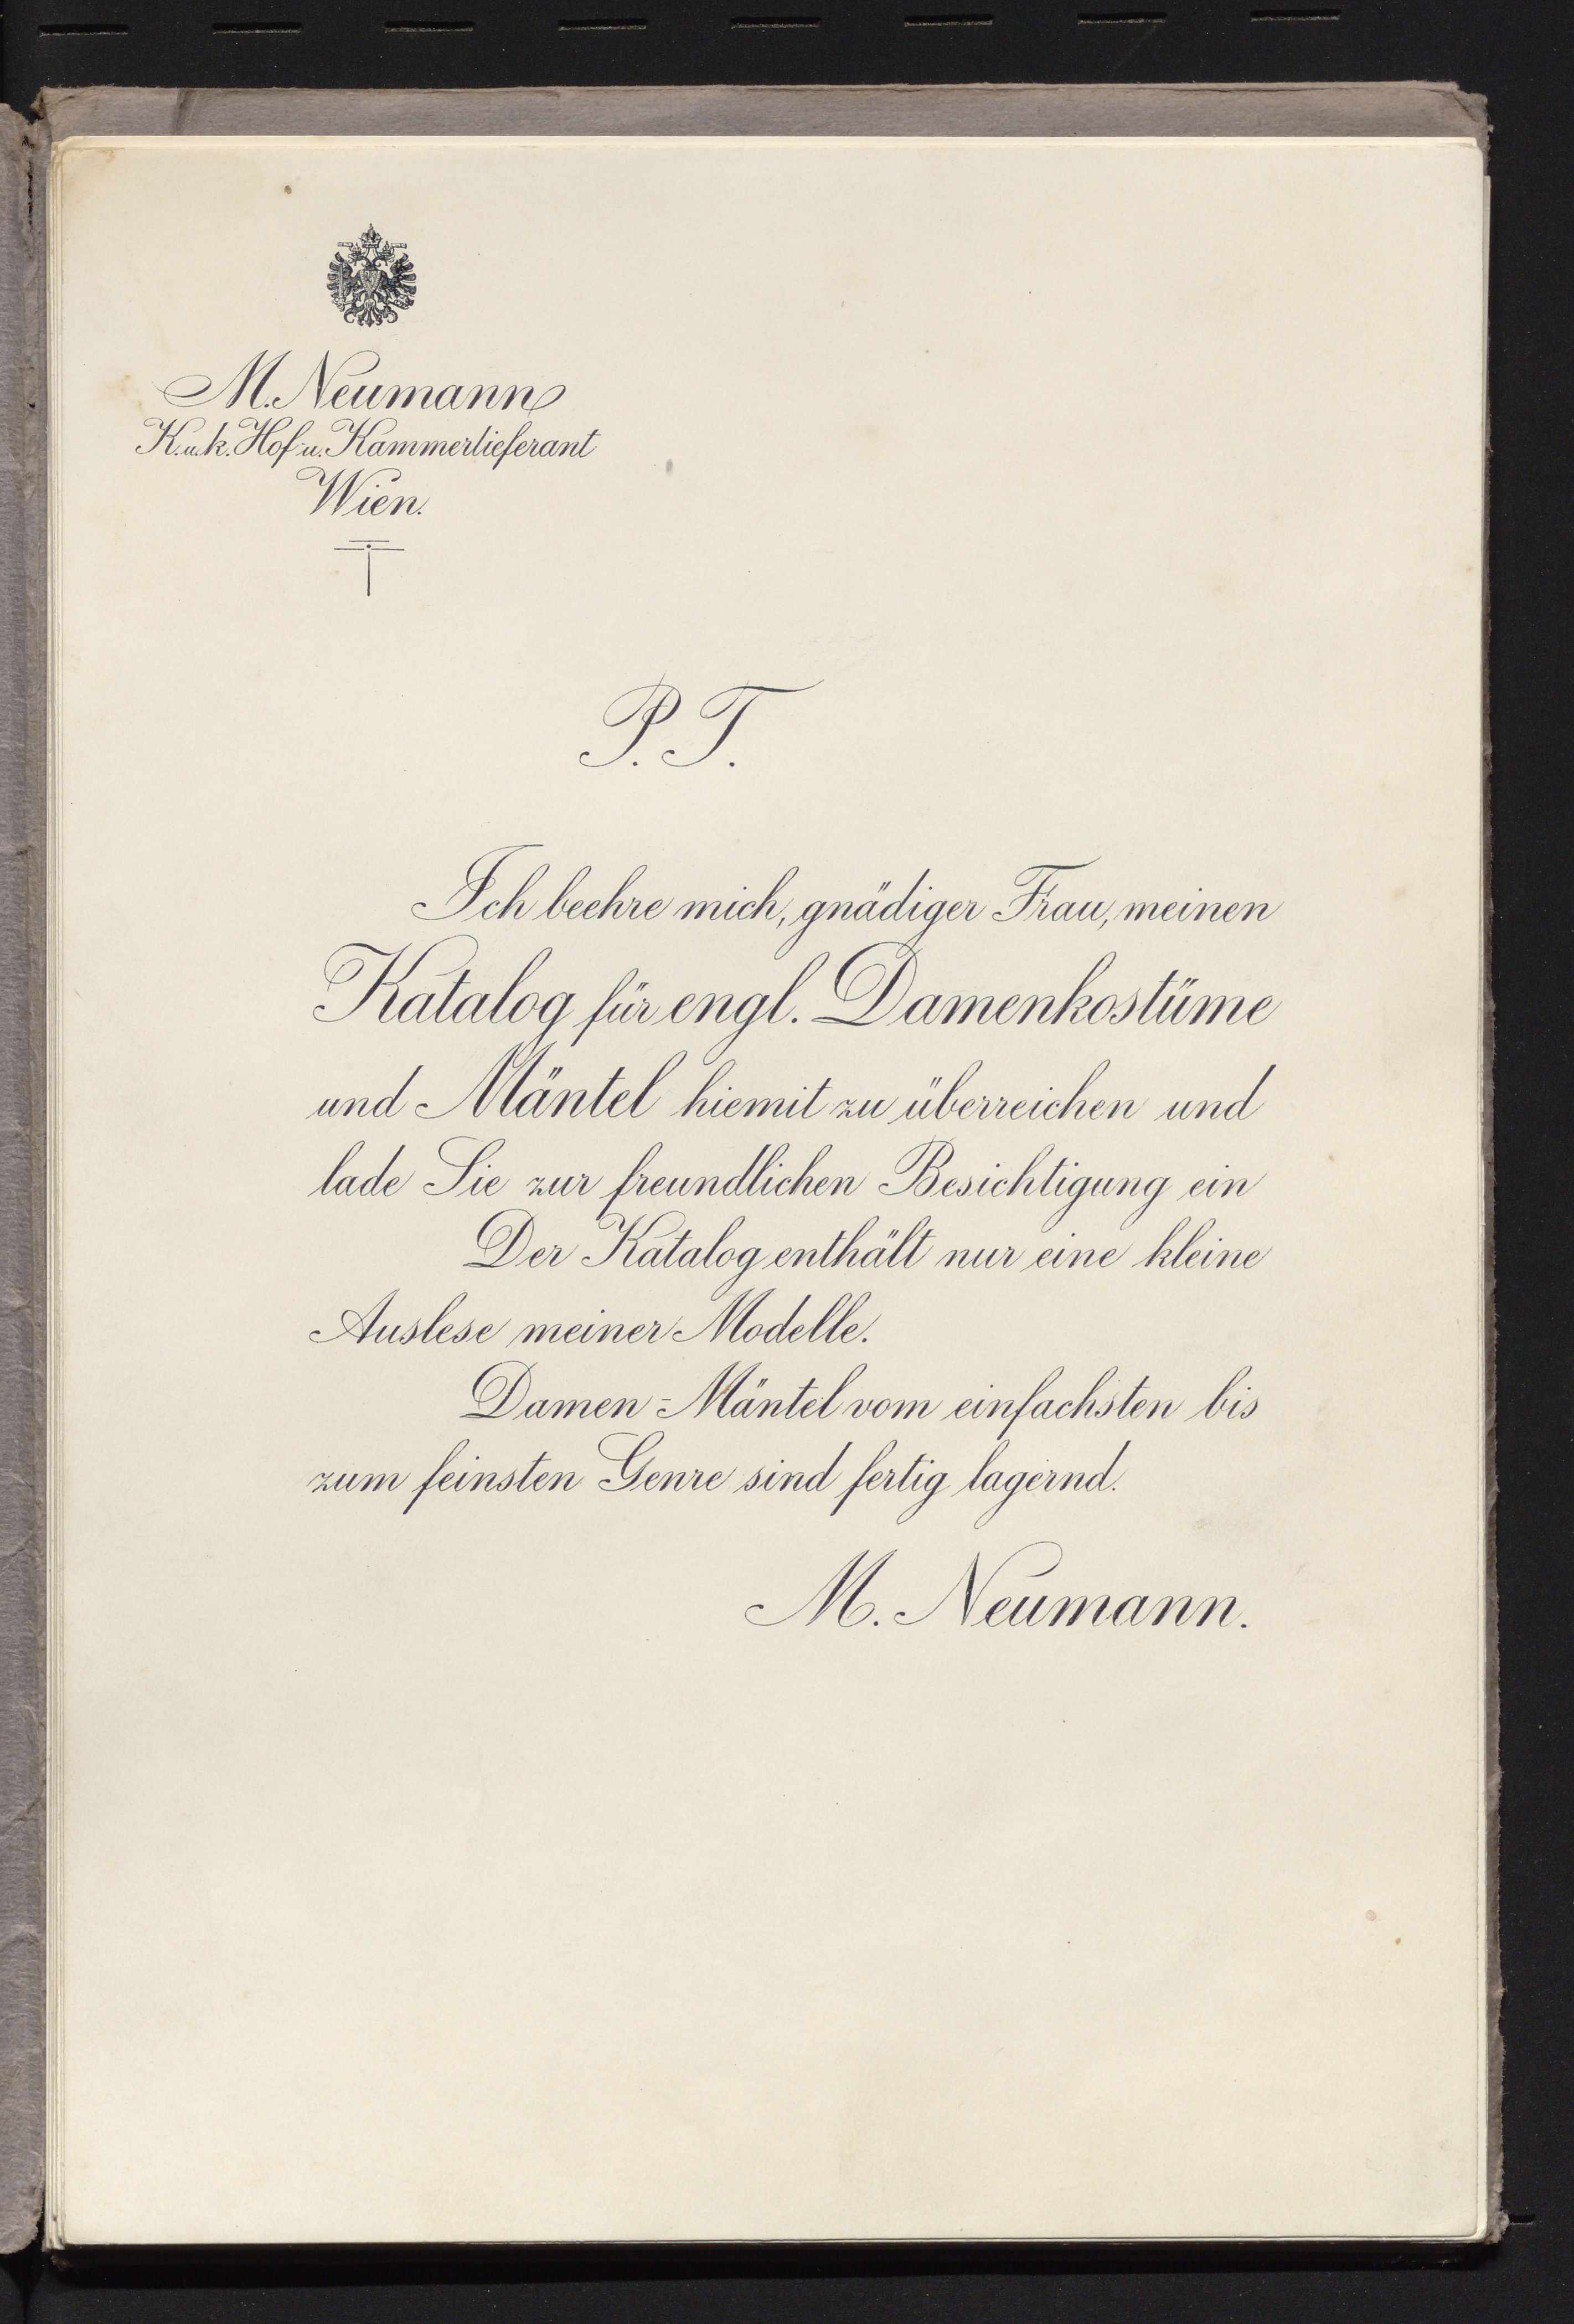 M. Neumann
K. u. k. Hof- u. Kammerlieferant
Wien.
P. T.
Ich beehre mich, gnädiger Frau, meinen
Katalog für engl. Damenkostüme
und Mäntel hiemit zu überreichen und
lade Sie zur freundlichen Besichtigung ein
Der Katalog enthält nur eine kleine
Auslese meiner Modelle.
Damen-Mäntel vom einfachsten bis
zum feinsten Genre sind fertig lagernd.
M. Neumann.